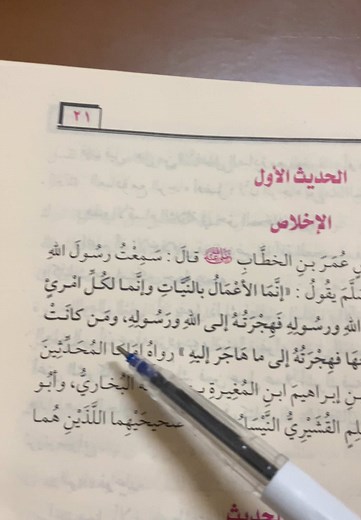 ٢١
الحديث الأول
الإخلاص
عُمَرَ بنِ الخطَّابِ رضي الله عنه قالَ : سَمِعْتُ رسُولَ اللهِ
يقُولُ : «إنَّمَا الأعْمَالُ بالنِّيَّاتِ وإنَّمَا لكُلِّ امْرِئٍ
ورسُولِهِ فَهِجْرَتُهُ إلى اللهِ ورَسُولِهِ، ومَن كانَتْ
فهِجْرَتُهُ إلى ما هَاجَرَ إليهِ» رواهُ إمَامَا المُحَدِّثِينَ
إبراهيمَ ابنِ المُغِيرةِ البُخاريُّ، وأبُو
القُشَيْرِيُّ صحيحَيْهِما اللَّذَيْنِ هُما